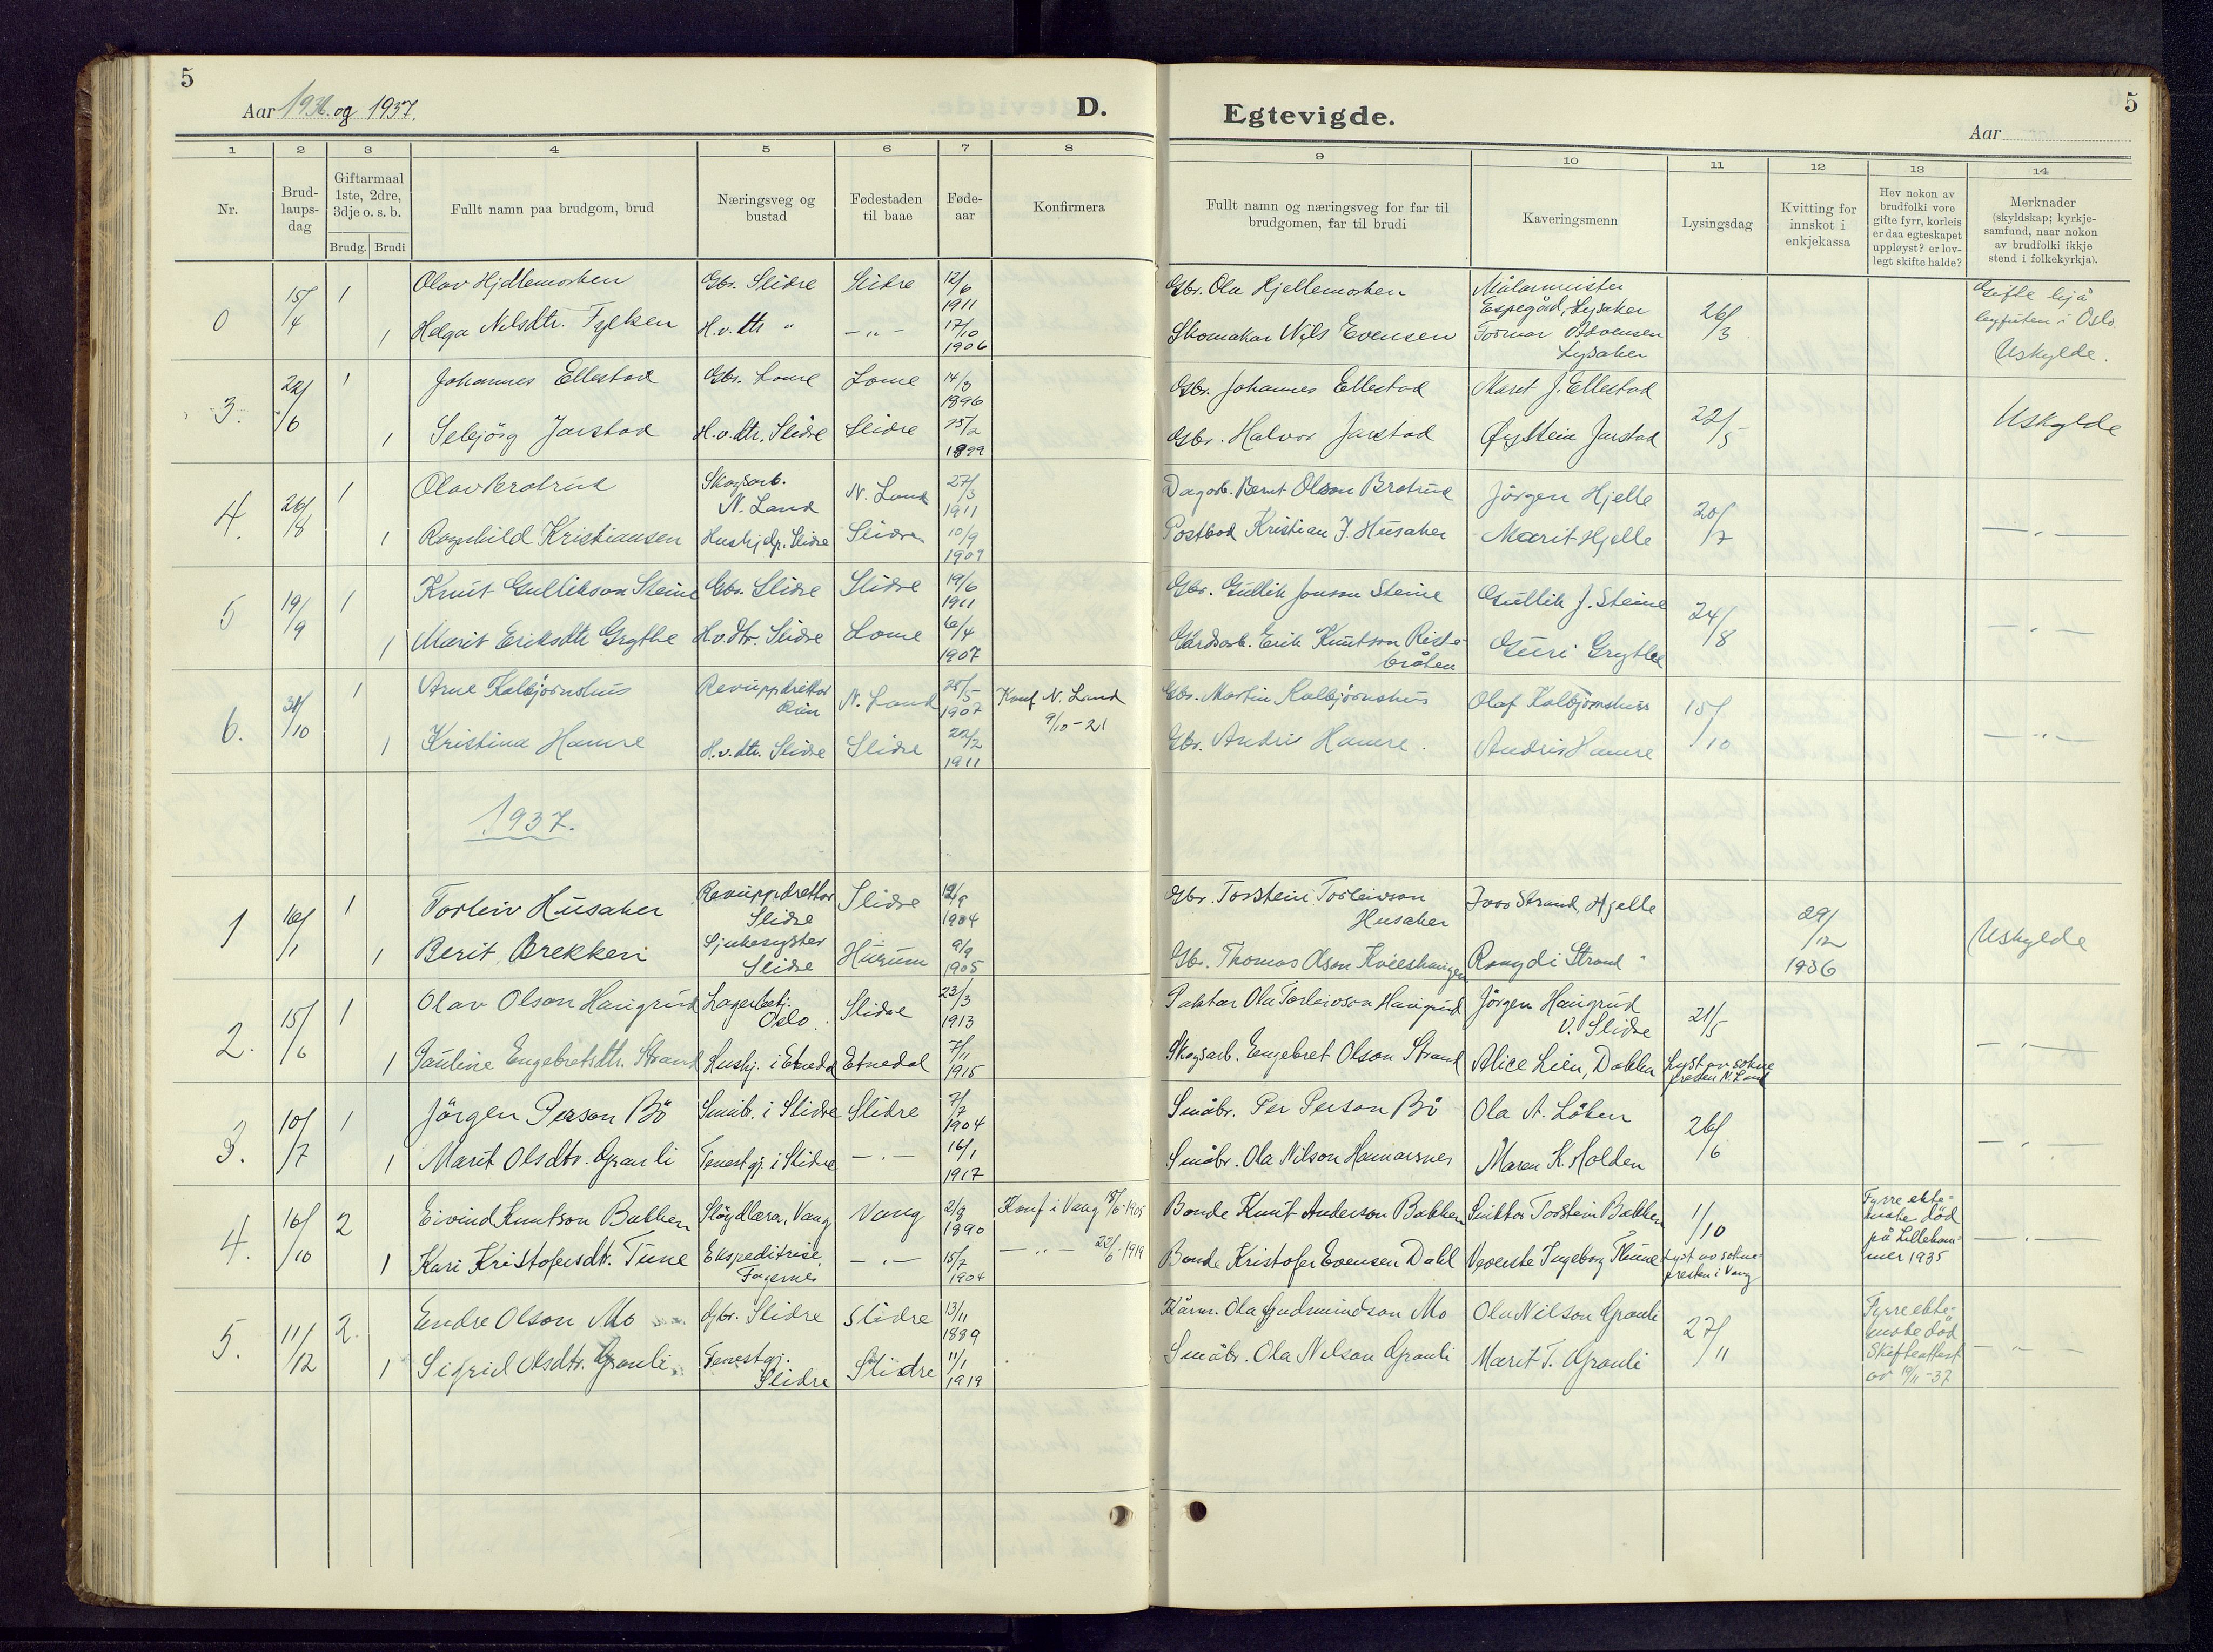 5
Aar 1936. og 1937.
D.
1 2 3 4 5 6 7 8
Nr.
Brud-
laups-
dag
Giftarmaal
1ste, 2dre,
3dje o. s. b.
Brudg. Brudi
Fullt namn paa brudgom, brud
Næringsveg og
bustad
Fødestaden
til baae
Føde-
aar
Konfirmera
0 15/4 1 Olav Hjellemoshen Gbr. Slidre Slidre 12/6 1911
1 Helga Nilsdtr. H.v. dtr " — " — 17/10 1906
3. 22/6 1 Johannes Ellestad Gbr. Lome Lome 14/3 1896
1 Selejörg Jarstad H.v. dtr. Slidre Slidre 25/2 1899
4. 26/8 1 Olav Brotrud Skogsarb.
N. Land N. Land 27/3 1911
1 Ragnhild Kristiansen Hushjelp. Slidre Slidre 10/9 1909
5 19/9 1 Knut Gullikson Steine Gbr. Slidre Slidre 19/6 1911
1 Marit Eriksdtr Grythe H.v. dtr. Slidre Lome 6/4 1907
6. 31/10 1 Arne Kolbjörnshus Revuppdrettar N. Land 25/5 1907 Konf N. Land
9/10 - 21
1 Kristina Hamre H.v. dtr. Slidre Slidre 22/2 1911
1937.
1 16/1 1 Torleiv Husaker Revuppdrettar
Slidre Slidre 12/9 1904
1 Berit Brekken Sjukesyster
Slidre Hurum 9/9 1905
2. 15/6 1 Olav Olson Haugrud Lagerbetj.
Oslo. Slidre 23/3 1913
1 Pauline Engebretsdtr. Strand Hushj. i Etnedal Etnedal 7/11 1915
3. 10/7 1 Jörgen Person Bö Småb. i Slidre Slidre 7/7 1904
1 Marit Olsdtr. Grauli Tenestgj. i Slidre — " — 16/1 1917
4. 16/10 2 Eivind Knutson Bakken Slöydlærar, Vang Vang 2/8 1890 Konf i Vang 18/6 - 1905
1 Kari Kristofersdtr. Tune Ekspeditrise,
Fagernes — " — 15/7 1904 — " — 22/6 - 1919
5. 11/12 2. Endre Olson Mo Gbr. Slidre Slidre 13/11 1889
1 Sigrid Olsdtr. Grauli Tenestgj.
Slidre Slidre 11/1 1919
Egtevigde.
5
Aar
9 10 11 12 13 14
Fullt namn og næringsveg for far til
brudgomen, far til brudi
Kaveringsmenn
Lysingsdag
Kvitting for
innskot i
enkjekassa
Hev nokon av
brudfolki vore
gifte fyrr, korleis
er daa egteskapet
uppløyst? er lov-
legt skifte halde?
Merknader
(skyldskap; kyrkje-
samfund, naar nokon
av brudfolki ikkje
stend i folkekyrkja).
Gbr. Ola Hjellemoshen Målarmeister
Espegård, Lysaker 26/3 Gifte hjå
byfuten i Oslo.
Skomakar Nils Evensen Tormar Lysaker Uskylde.
Gbr. Johannes Ellestad Marit J. Ellestad 22/5 Uskylde
Gbr. Halvor Jarstad Øystein Jarstad
Dagarb. Bernt Olson Brotrud Jörgen Hjelle 20/7 — " —
Postbod Kristian J. Husaker Marit Hjelle
Gbr. Gullik Jonson Steine Gullik J. Steine 24/8 — " —
Gårdsarb. Erik Knutson Riste-
bråten Guri Grythe
Gbr. Martin Kolbjörnshus Olaf Kolbjörnshus 15/10 — " —
Gbr. Andris Hamre. Andris Hamre
Gbr. Torstein Torleivson
Husaker Ivar Strand, Hjelle 29/12 1936 Uskylde
Gbr. Thomas Olson Rangdi Strand "
Paktar Ola Torleivson Haugrud Jörgen Haugrud
V. Slidre 21/5 — " —
Skogsarb. Engebret Olson Strand Alice Lien, Dokka Lyst av sokne
presten N. Land
Småbr. Per Person Bö Ola A. Löken 26/6 — " —
Småbr. Ola Nilson Hamarsnes Maren K. Holden
Bonde Knut Anderson Bakken Torstein Bakken 1/10 Fyrre ekte-
make död
på Lilleham-
mer 1935 — " —
Bonde Kristofer Evensen Dahl Ingeborg Thune Lyst av sokne-
presten i Vang
Kårm. Ola Gudmundson Mo Ola Nilson Grauli 27/11 Fyrre ekte-
make död
Skifteattest
av 19/11 - 37 — " —
Småbr. Ola Nilson Grauli Marit T. Grauli